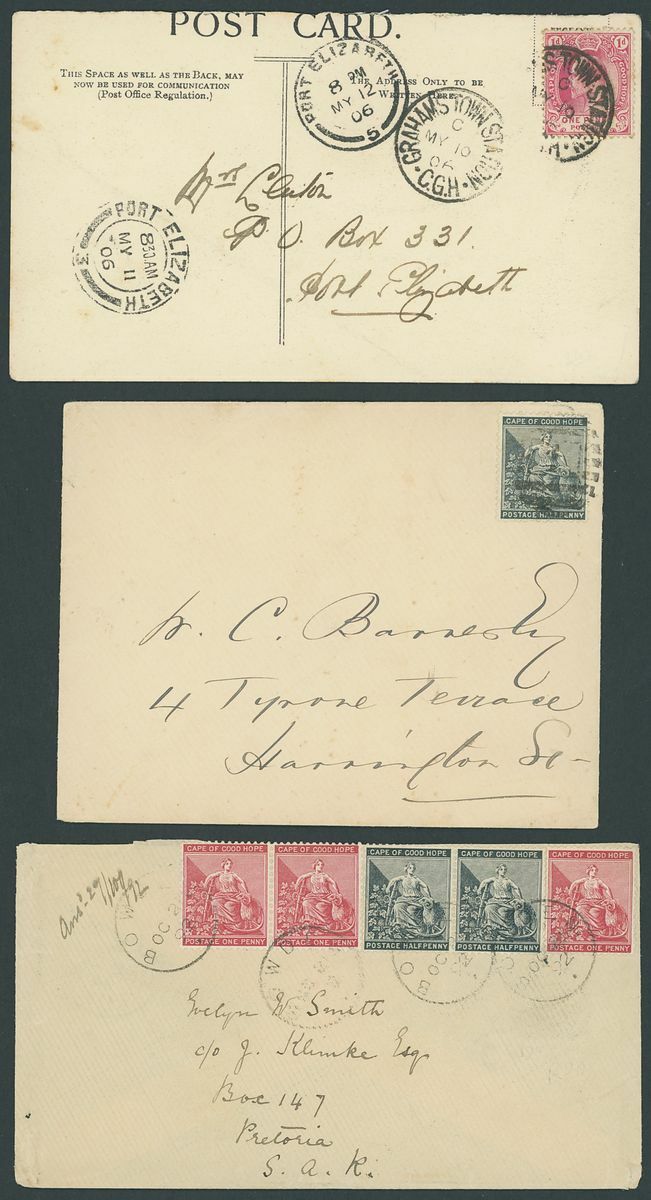 POST CARD.
THIS SPACE AS WELL AS THE BACK, MAY
NOW BE USED FOR COMMUNICATION
(Post Office Regulation.)
THE ADDRESS ONLY TO BE
WRITTEN HERE.
PORT ELIZABETH
8 PM
MY 12
06
5
GRAHAMSTOWN STATION
C
MY 10
06
C.G.H
1d 1d
ONE PE
PORT ELIZABETH
8 30 AM
MY 11
06
3
Mrs
P.O. Box 331.
Port Elizabeth
CAPE OF GOOD HOPE
POSTAGE HALFPENNY
C. Barnesby
4 Tyrone Terrace
Harrington St
Ansd 29/10/92
CAPE OF GOOD HOPE
POSTAGE ONE PENNY
CAPE OF GOOD HOPE
POSTAGE ONE PENNY
CAPE OF GOOD HOPE
POSTAGE HALFPENNY
CAPE OF GOOD HOPE
POSTAGE HALFPENNY
CAPE OF GOOD HOPE
POSTAGE ONE PENNY
Evelyn W Smith
c/o J. Klimke Esq
Box 147
Pretoria
S. A. R.